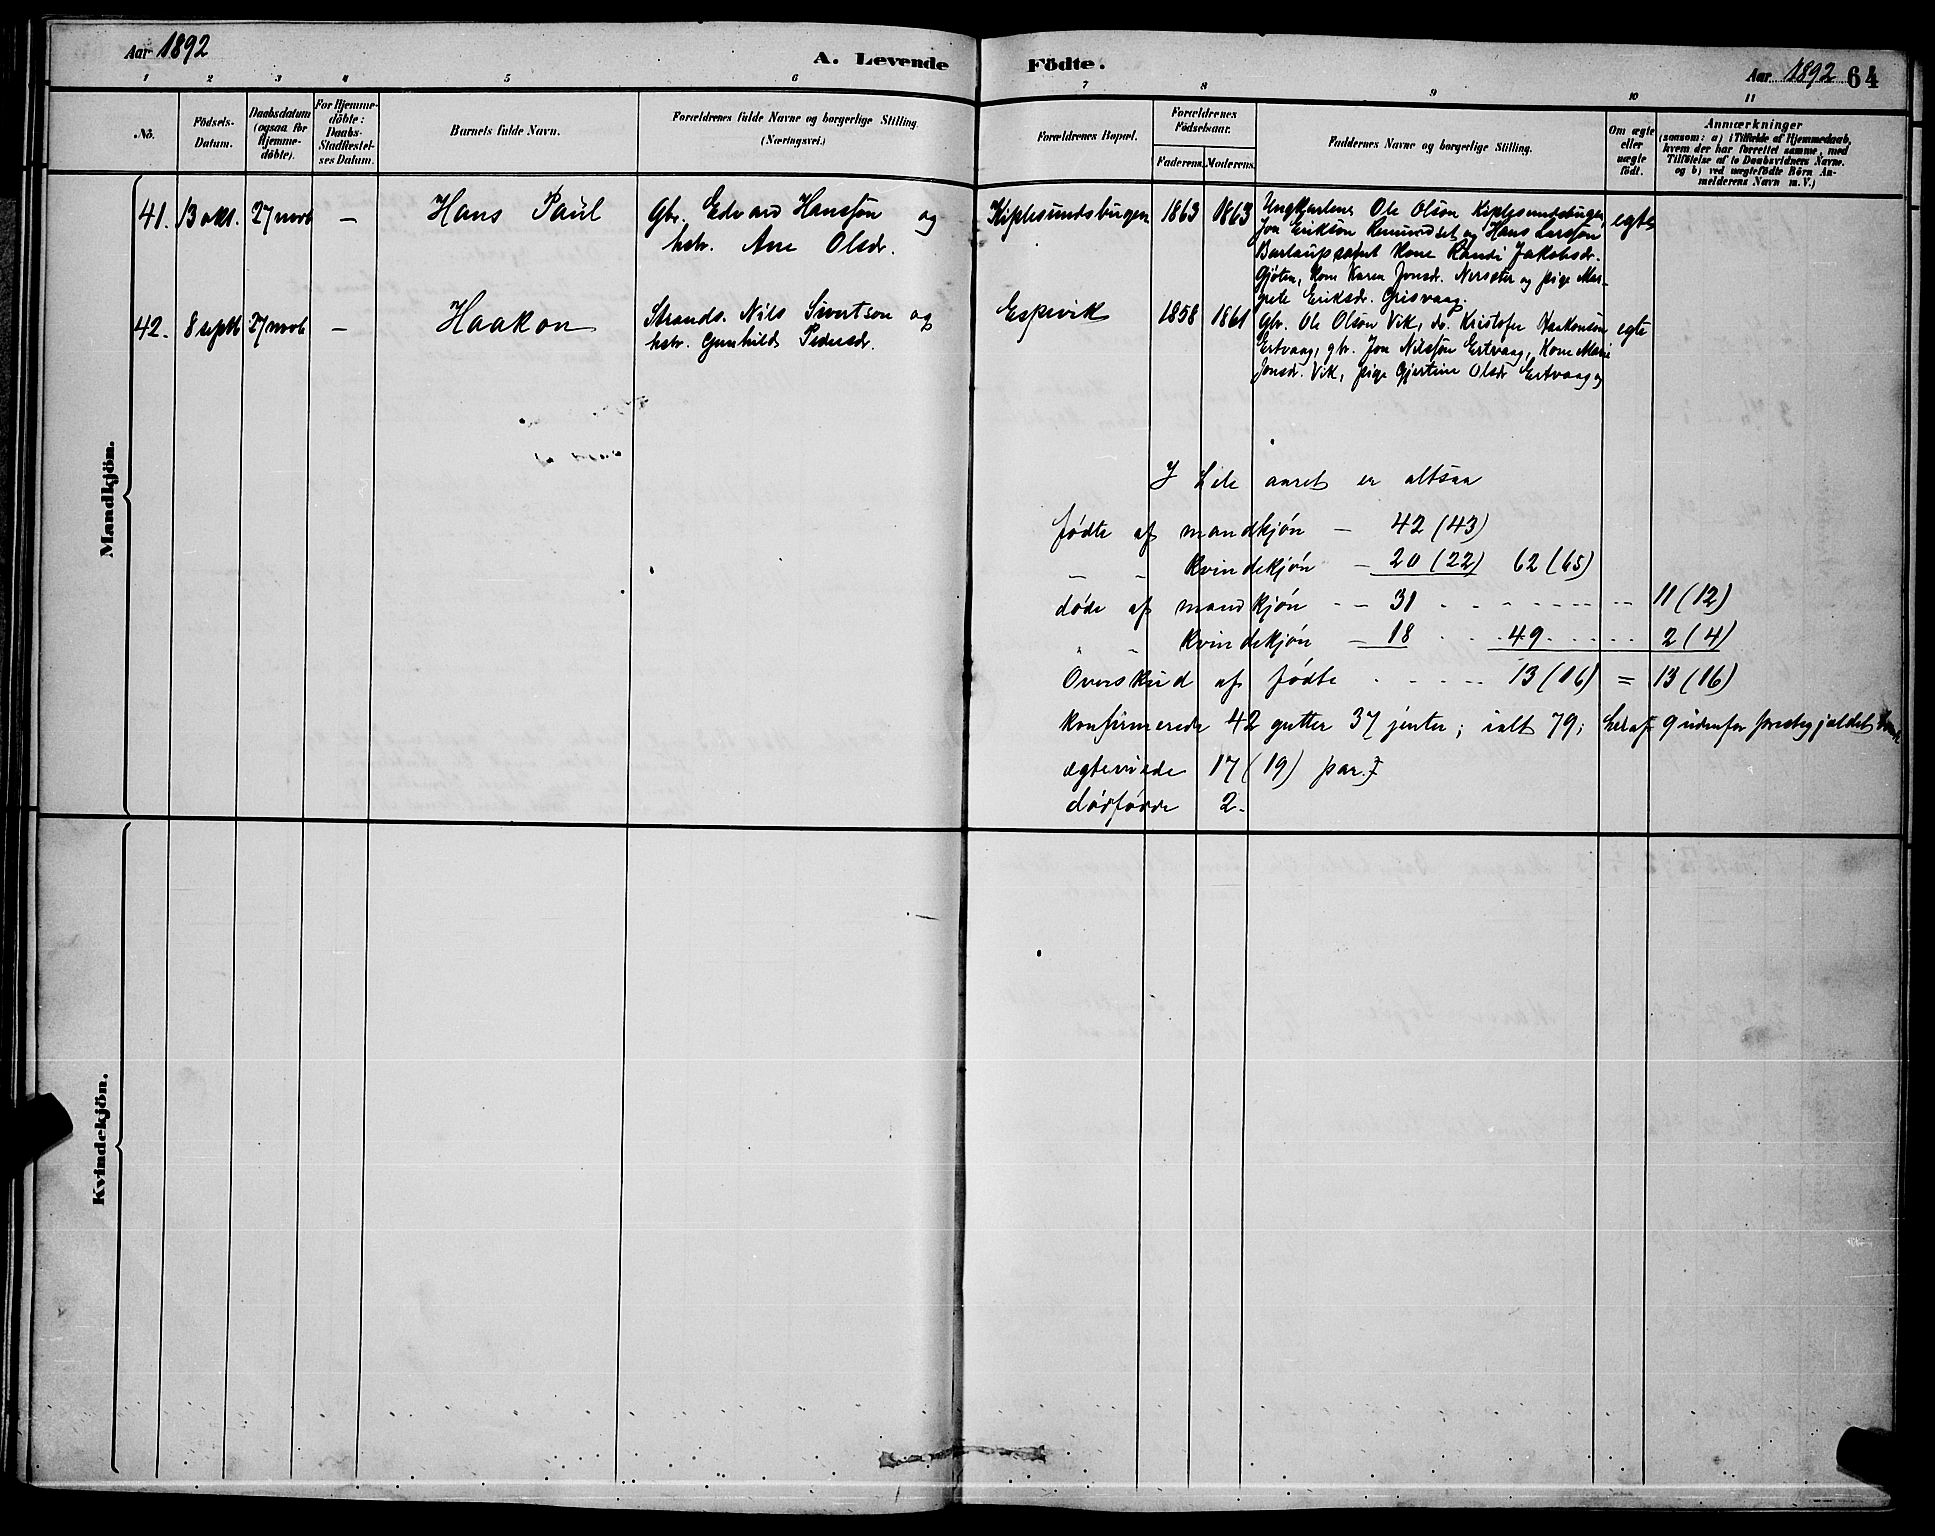 Aar 1892
A. Levende Födte.
Aar 1892 64
1 2 3 4 5 6 7 8 9 10 11
No.
Födsels-Datum.
Daabsdatum (ogsaa for Hjemme-döbte).
For Hjemme-döbte: Daabs-Stadfæstel-ses Datum.
Barnets fulde Navn.
Forældrenes fulde Navne og borgerlige Stilling.
(Næringsvei.)
Forældrenes Bopæl.
Forældrenes Födselsaar.
Faderens. Moderens.
Faddernes Navne og borgerlige Stilling.
Om ægte eller uægte födt.
Anmærkninger
(saasom: a) i Tilfælde af Hjemmedaab,
hvem der har forrettet samme, med
Tilföielse af to Daabsvidners Navne.
og b) ved uægtefödte Börn An-
melderens Navn m. V.)
Mandkjön.
41. 13 okt. 27 novb — Hans Paul
Gbr. Edvard Hanssøn og
hstr. Ane Olsdr.
Kiplesundsbugen 1863 1863
Ungkarlene Ole Olsøn Kiplesundsbugen,
Jon Eriksøn Remundset og Hans Larssøn
Bartaup samt kone Randi Jakobsdr.
Gjøten, kone Karen Jonsdr. Nerseter og pige Mar-
grete Eriksdr. Grisvaag.
egte
42. 8 septb 27 novb — Haakon
Strands. Nils Sivertsøn og
hstr. Gunhild Pedersdr.
Espevik 1858 1861
Gbr. Ole Olsøn Vik, do. Kristofer Haakonsøn
Ertvaag, gbr. Jon Nilssøn Ertvaag, Kone Marie
Jonsdr. Vik, pige Gjertine Olsdr Ertvaag og
egte
I hele aaret er altsaa
fødte af mandkjøn — 42 (43)
" — kvindekjøn — 20 (22) 62 (65)
døde af mandkjøn — 31 11 (12)
" — kvindekjøn — 18 49 2 (4)
Overskud af fødte 13 (16) = 13 (16)
Konfirmerede 42 gutter 37 jenter; ialt 79; heraf 9 udenfor prestegjeldet
egteviede 17 (19) par.
dødfødde 2.
Kvindekjön.